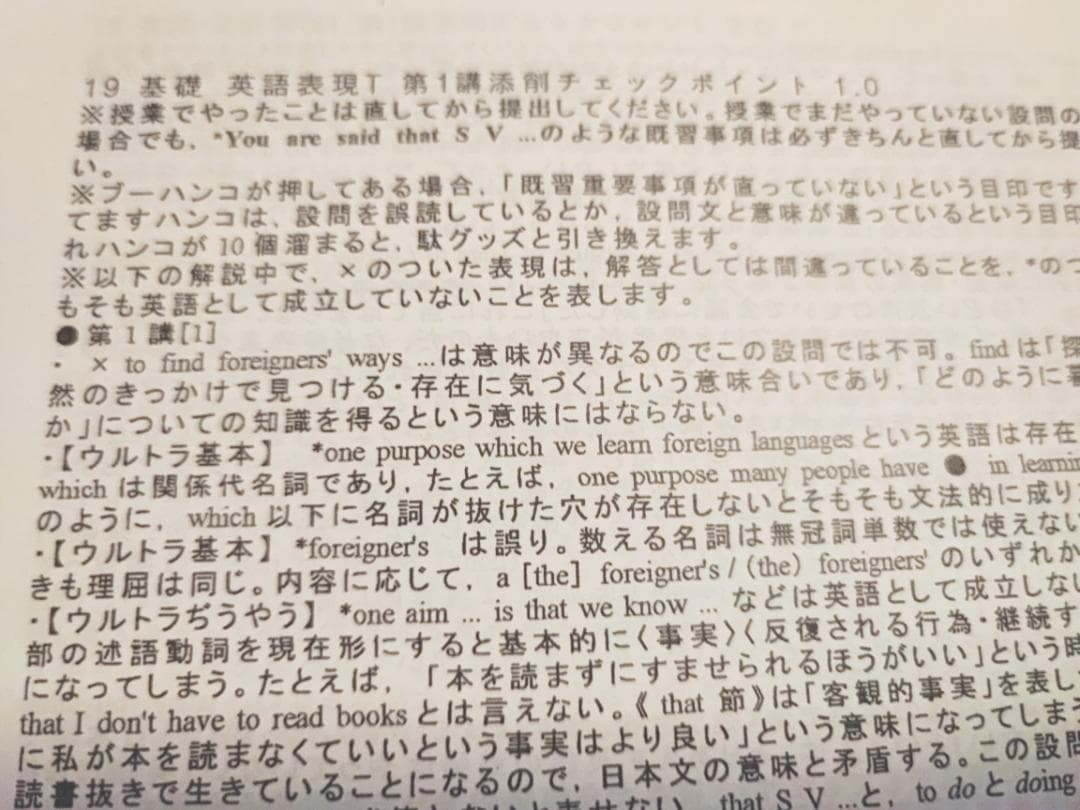 19 基礎 英語表現T 第1講添削チェックポイント 1.0
※授業でやったことは直してから提出してください。授業でまだやっていない設問の
場合でも，*You are said that S V ...のような既習事項は必ずきちんと直してから提
い。
※ブーハンコが押してある場合，「既習重要事項が直っていない」という目印です
てますハンコは，設問を誤読しているとか，設問文と意味が違っているという目印
れハンコが 10 個溜まると，駄グッズと引き換えます。
※以下の解説中で，×のついた表現は，解答としては間違っていることを，*のつ
もそも英語として成立していないことを表します。
●第 1 講[1]
・ × to find foreigners' ways ...は意味が異なるのでこの設問では不可。find は「探
然のきっかけで見つける・存在に気づく」という意味合いであり，「どのように暮
か」についての知識を得るという意味にはならない。
・【ウルトラ基本】 *one purpose which we learn foreign languages という英語は存在
which は関係代名詞であり，たとえば，one purpose many people have ● in learnin
のように，which 以下に名詞が抜けた穴が存在しないとそもそも文法的に成り
・【ウルトラ基本】*foreigner's は誤り。数える名詞は無冠詞単数では使えない
きも理屈は同じ。内容に応じて，a [the] foreigner's / (the) foreigners' のいずれか
・【ウルトラぢうやう】*one aim ... is that we know ... などは英語として成立しない
部の述語動詞を現在形にすると基本的に〈事実〉〈反復される行為・継続す
になってしまう。たとえば，「本を読まずにすませられるほうがいい」という時
that I don't have to read books とは言えない。《that 節》は「客観的事実」を表し
に私が本を読まなくていいという事実はより良い」という意味になってしまう
読書抜きで生きていることになるので，日本文の意味と矛盾する。この設問
that S V ...と，to do と doing